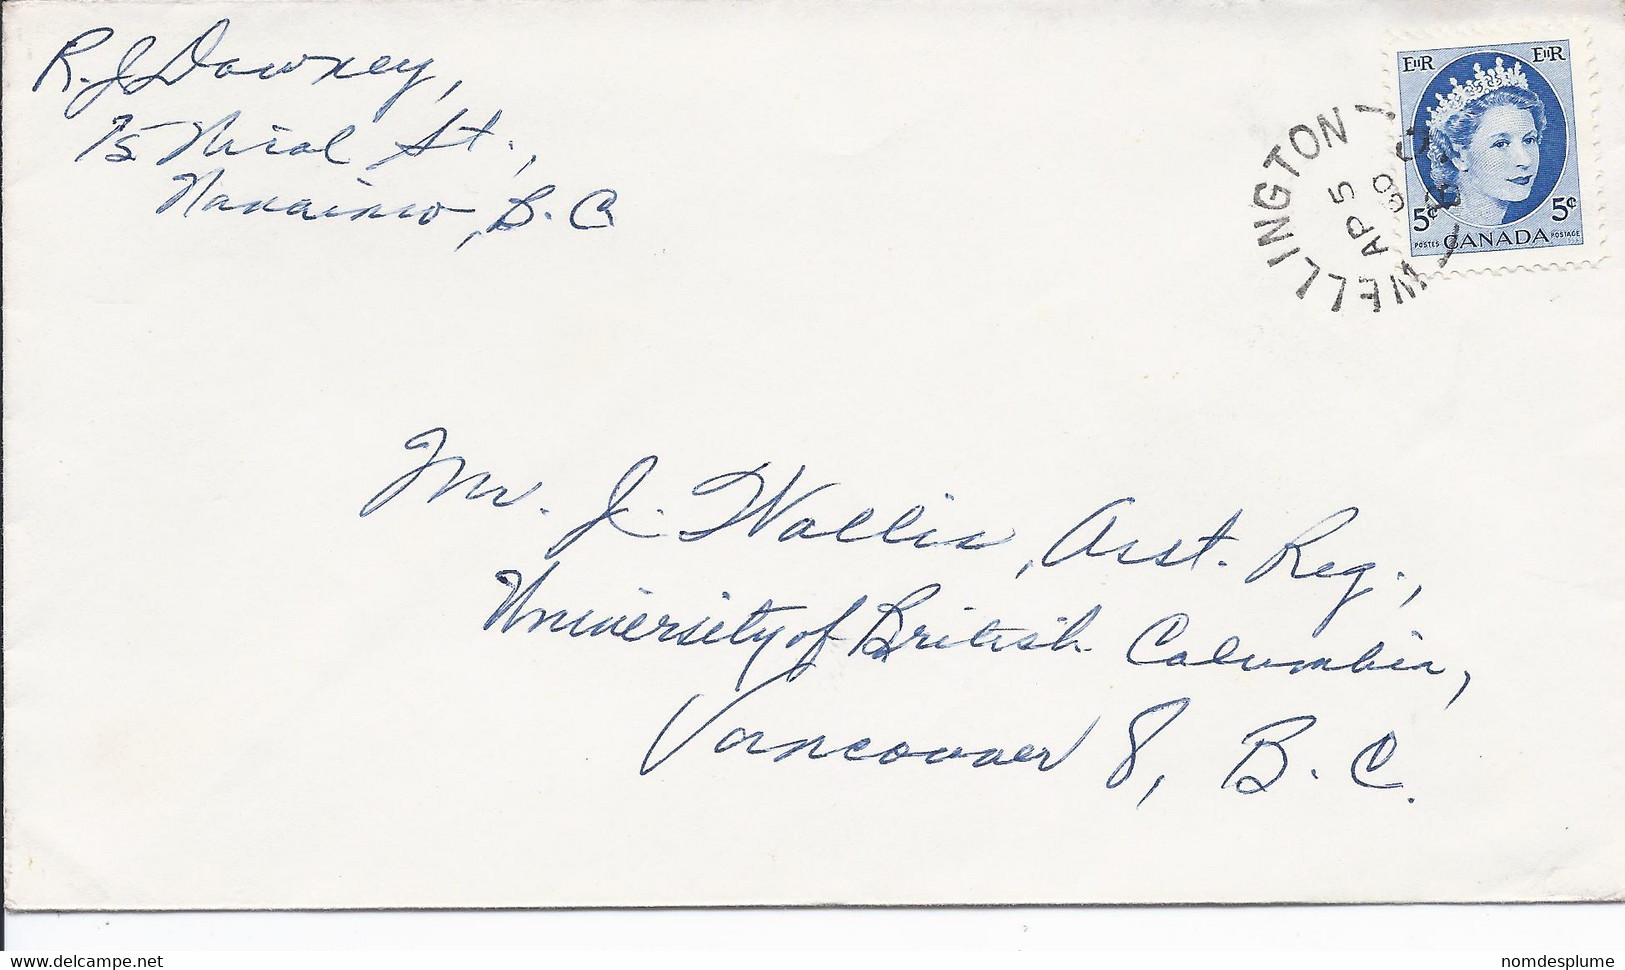 R. J Downey,
75 Nicol St.,
Nanaimo, B. C
E II R E II R
5¢ 5¢
POSTES CANADA POSTAGE
WELLINGTON
AP 5
60
B. C.
Mr. J. Wallis, Asst. Reg.,
University of British Columbia,
Vancouver 8, B. C.
www.delcampe.net nomdesplume